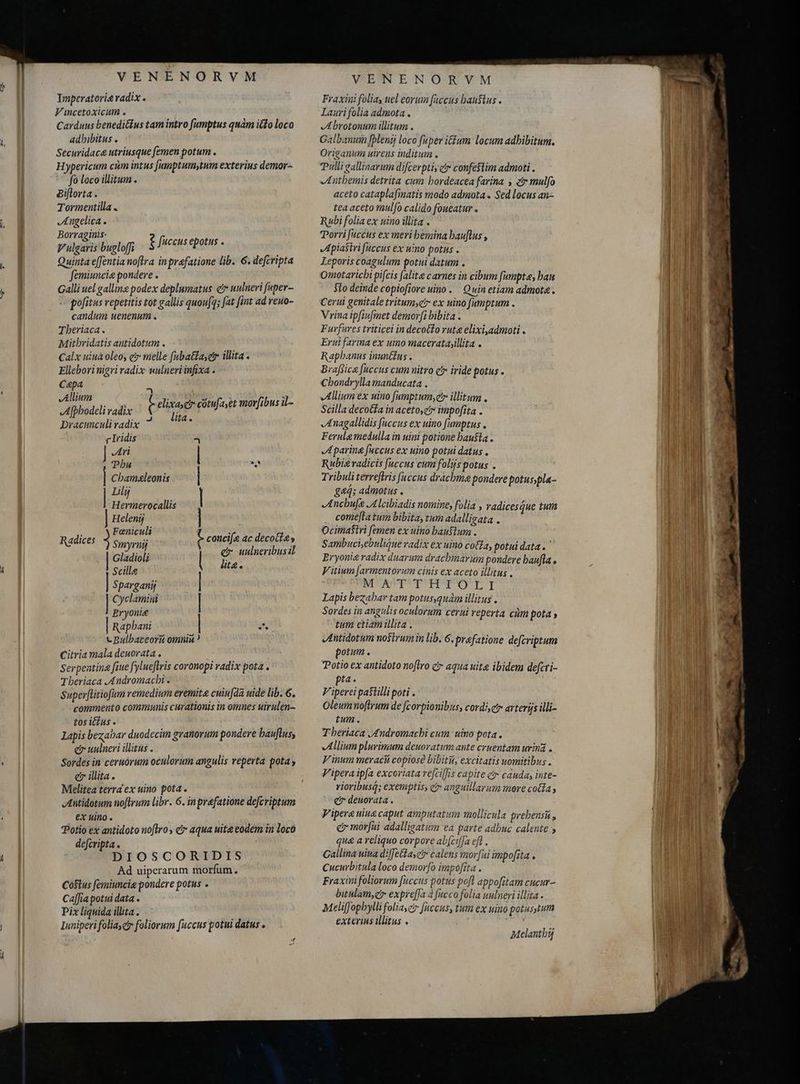 VENENORVM
Imperatoriæ radix .
Vincetoxicum .
Carduus benedictus tam intro sumptus quàm icto loco
adhibitus .
Securidacæ utriusque semen potum .
Hypericum cùm intus sumptum, tum exterius demor-
so loco illitum .
Bistorta .
Tormentilla .
Angelica .
Borraginis.
Vulgaris buglossi } succus epotus .
Quinta essentia nostra in præfatione lib. 6. descripta
semiunciæ pondere .
Galli uel gallinæ podex deplumatus & uulneri super-
positus repetitis tot gallis quousq; sat sint ad reuo-
candum uenenum .
Theriaca .
Mithridatis antidotum .
Calx uiua oleo, & melle subacta, & illita .
Ellebori nigri radix uulneri infixa .
Cæpa
Allium
Asphodeli radix } elixa, & cõtusa, et morsibus il-
Dracunculi radix lita.
Iridis
Ari
Phu
Chamæleonis
Lilij
Hermerocallis
Helenij
Fœniculi
Radices Smyrnij concisæ ac decoctæ,
Gladioli & uulneribus il
Scillæ litæ.
Sparganij
Cyclamini
Bryoniæ
Raphani
Bulbaceorũ omniũ
Citria mala deuorata .
Serpentinæ siue syluestris coronopi radix pota .
Theriaca Andromachi .
Superstitiosum remedium eremitæ cuiusdã uide lib. 6.
commento communis curationis in omnes uirulen-
tos ictus .
Lapis bezahar duodecim granorum pondere haustus,
& uulneri illitus .
Sordes in ceruorum oculorum angulis reperta pota,
& illita .
Melitea terra ex uino pota .
Antidotum nostrum libr. 6. in præfatione descriptum
ex uino .
Potio ex antidoto nostro, & aqua uitæ eodem in loco
descripta .
DIOSCORIDIS
Ad uiperarum morsum.
Costus semiunciæ pondere potus .
Cassia potui data .
Pix liquida illita .
Iuniperi folia, & foliorum succus potui datus .
VENENORVM
Fraxini folia, uel eorum succus haustus .
Lauri folia admota .
Abrotonum illitum .
Galbanum splenij loco super ictum locum adhibitum.
Origanum uirens inditum .
Pulli gallinarum discerpti, & confestim admoti .
Anthemis detrita cum hordeacea farina , & mulso
aceto cataplasmatis modo admota . Sed locus an-
tea aceto mulso calido foueatur .
Rubi folia ex uino illita .
Porri succus ex meri hemina haustus ,
Apiastri succus ex uino potus .
Leporis coagulum potui datum .
Omotarichi piscis salitæ carnes in cibum sumptæ, hau
sto deinde copiosiore uino . Quin etiam admotæ .
Cerui genitale tritum, & ex uino sumptum .
Vrina ipsiusmet demorsi bibita .
Furfures triticei in decocto rutæ elixi, admoti .
Erui farina ex uino macerata, illita .
Raphanus inunctus .
Brassicæ succus cum nitro & iride potus .
Chondrylla manducata .
Allium ex uino sumptum, & illitum .
Scilla decocta in aceto, & imposita .
Anagallidis succus ex uino sumptus .
Ferulæ medulla in uini potione hausta .
Aparinæ succus ex uino potui datus .
Rubiæ radicis succus cum folijs potus .
Tribuli terrestris succus drachmæ pondere potus, pla-
gæq; admotus .
Anchusæ Alcibiadis nomine, folia , radicesque tum
comesta tum bibita, tum adalligata .
Ocimastri semen ex uino haustum .
Sambuci, ebulique radix ex uino cocta, potui data .
Bryoniæ radix duarum drachmarum pondere hausta .
Vitium sarmentorum cinis ex aceto illitus .
MATTHIOLI
Lapis bezahar tam potus, quàm illitus .
Sordes in angulis oculorum cerui reperta cùm pota ,
tum etiam illita .
Antidotum nostrum in lib. 6. præfatione descriptum
potum .
Potio ex antidoto nostro & aqua uitæ ibidem descri-
pta.
Viperei pastilli poti .
Oleum nostrum de scorpionibus, cordi, & arterijs illi-
tum.
Theriaca Andromachi cum uino pota.
Allium plurimum deuoratum ante cruentam urinã .
Vinum meracũ copiosè bibitũ, excitatis uomitibus .
Vipera ipsa excoriata rescissis capite & cauda, inte-
rioribusq; exemptis, & anguillarum more cocta ,
& deuorata .
Viperæ uiuæ caput amputatum mollicula prehensũ,
& morsui adalligatum ea parte adhuc calente ,
quæ a reliquo corpore abscissa est .
Gallina uiua dissecta, & calens morsui imposita .
Cucurbitula loco demorso imposita .
Fraxini foliorum succus potus post appositam cucur-
bitulam, & expressa à succo folia uulneri illita .
Melissophylli folia, & succus, tum ex uino potus, tum
exterius illitus .
Melanthij